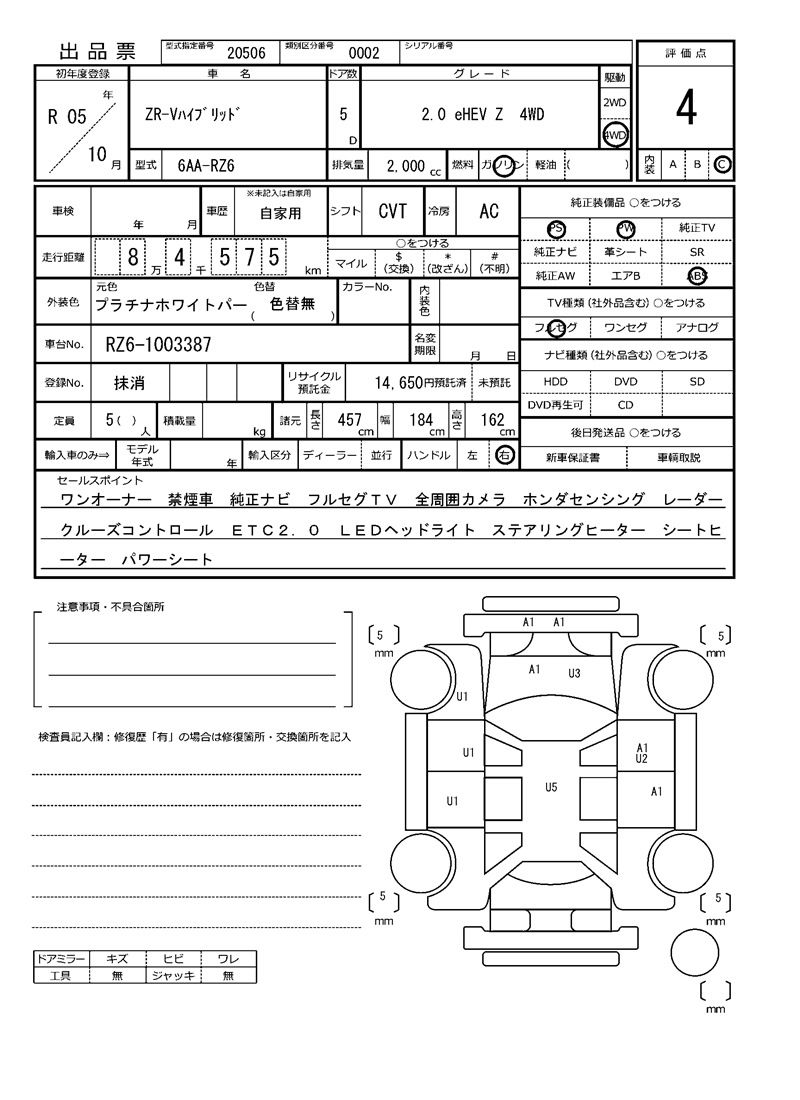 出品票 型式指定番号 20506 類別区分番号 0002 シリアル番号
評価点
初年度登録 車名 ドア数 グレード 駆動
R 05 年 10 月 ZR-Vﾊｲﾌﾞﾘｯﾄﾞ 5 D 2.0 eHEV Z 4WD 2WD 4WD
4
型式 6AA-RZ6 排気量 2.000 cc 燃料 ガソリン 軽油 ( )
内装 A B C
車検 年 月 車歴 ※未記入は自家用 自家用 シフト CVT 冷房 AC
純正装備品 ○をつける
PS PW 純正TV
走行距離 8 万 4 千 5 7 5 km ○をつける
マイル $ (交換) * (改ざん) # (不明)
純正ナビ 革シート SR
純正AW エアB ABS
外装色 元色 プラチナホワイトパー 色替 色替無 ( ) カラーNo. 内装色
TV種類(社外品含む) ○をつける
フルセグ ワンセグ アナログ
車台No. RZ6-1003387 名変期限 月 日
ナビ種類(社外品含む) ○をつける
登録No. 抹消 リサイクル預託金 14,650円預託済 未預託
HDD DVD SD
DVD再生可 CD
定員 5( ) 人 積載量 kg 諸元 長さ 457 cm 幅 184 cm 高さ 162 cm
後日発送品 ○をつける
輸入車のみ⇒ モデル年式 年 輸入区分 ディーラー 並行 ハンドル 左 右
新車保証書 車輌取説
セールスポイント
ワンオーナー 禁煙車 純正ナビ フルセグTV 全周囲カメラ ホンダセンシング レーダー
クルーズコントロール ETC2.0 LEDヘッドライト ステアリングヒーター シートヒ
ーター パワーシート
注意事項・不具合箇所
検査員記入欄：修復歴「有」の場合は修復箇所・交換箇所を記入
ドアミラー キズ ヒビ ワレ
工具 無 ジャッキ 無
A1 A1
5 mm
5 mm
A1 U3
U1
U1
A1
U2
U1
U5
A1
5 mm
5 mm
mm